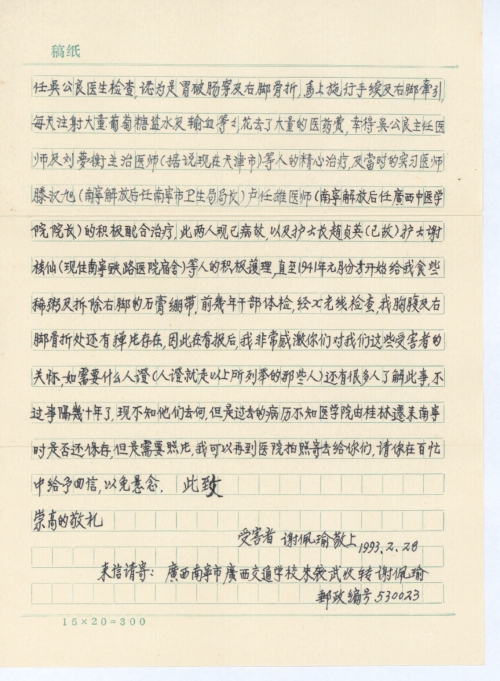 稿纸
任吴公良医生检查,认为是胃破肠穿及右脚骨折,马上施行手续及右脚牵引,
每天注射大量葡萄糖盐水及输血等,花去了大量的医药费,幸得吴公良主任医
师及刘梦衡主治医师(据说现在天津市)等人的精心治疗,及当时的实习医师
滕汉旭(南寧解放后任南寧市卫生局局长)卢任雄医师(南寧解放后任廣西中医学
院院长)的积极配合治疗,此两人现已病故,以及护士长赵贞英(已故)护士谢
桂仙(现住南寧铁路医院宿舍)等人的积极護理,直至1941年元月份才开始给我食些
稀粥及拆除右脚的石膏绷带,前幾年干部体检,经X光线检查,我胸腹及右
脚骨折处还有弹片存在,因此在看报后,我非常感激你们对我们这些受害者的
关怀.如需要什么人證(人證就是以上所列举的那些人)还有很多人了解此事,不
过事隔幾十年了,现不知他们去何,但是过去的病历不知医学院由桂林遷来南寧
时是否还保存,但是需要照片,我可以再到医院拍照寄去给你们,请你在百忙
中给予回信,以免悬念. 此致
崇高的敬礼
受害者 谢佩瑜敬上 1993.2.28
来信请寄: 廣西南寧市廣西交通学校朱 武收转谢佩瑜
郵政编号 530023
15×20=300